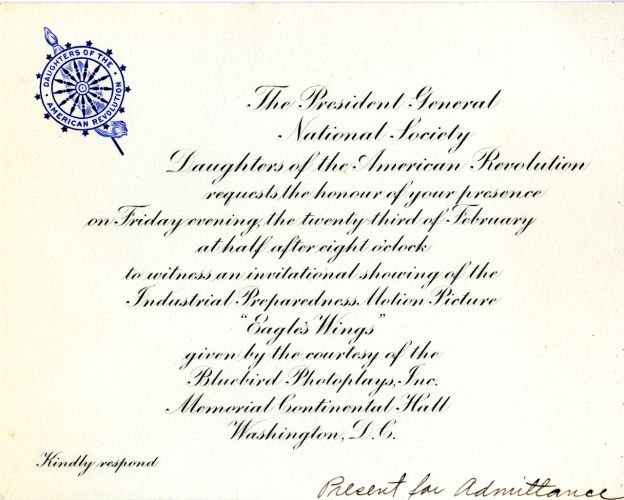 DAUGHTERS OF THE
AMERICAN REVOLUTION
The President General
National Society
Daughters of the American Revolution
requests the honour of your presence
on Friday evening, the twenty-third of February
at half after eight o'clock
to witness an invitational showing of the
Industrial Preparedness Motion Picture
"Eagle's Wings"
given by the courtesy of the
Bluebird Photoplays, Inc.
Memorial Continental Hall
Washington, D.C.
Kindly respond
Present for Admittance